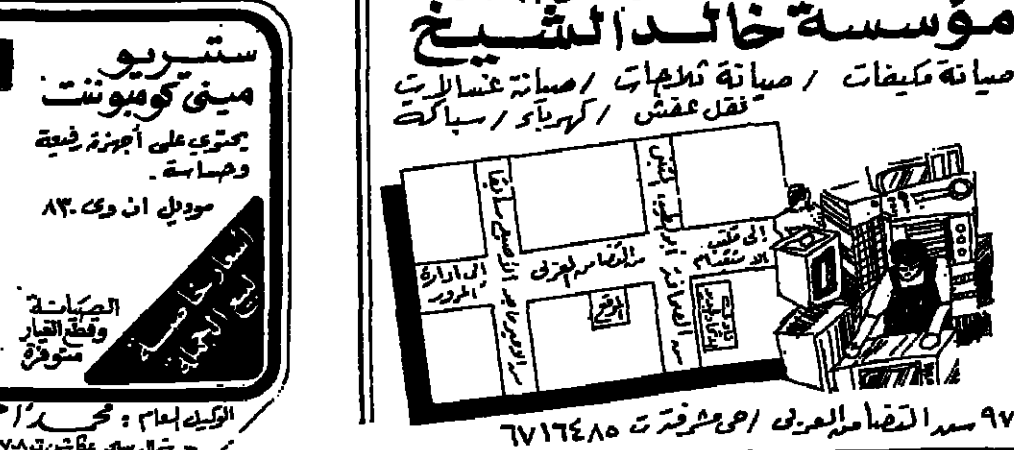 مؤسسة خالد الشيخ
صيانة مكيفات / صيانة ثلاجات / صيانة غسالات
نقل عفش / كهرباء / سباكة
إلى مكتب
الاستقدام
ش التضامن العربي
إلى ادارة
المرور
الموقع
٩٧ ش التضامن العربي / حي مشرفة ت ٦٧١٦٤٨٥
ستيريو
ميني كومبوننت
يحتوي على أجهزة رفيعة
وحساسة .
موديل ان وى ٨٣٠
أسعار خاصة
لبيع الجملة
الصيانة
وقطع الغيار
متوفرة
الوكيل العام : محمد